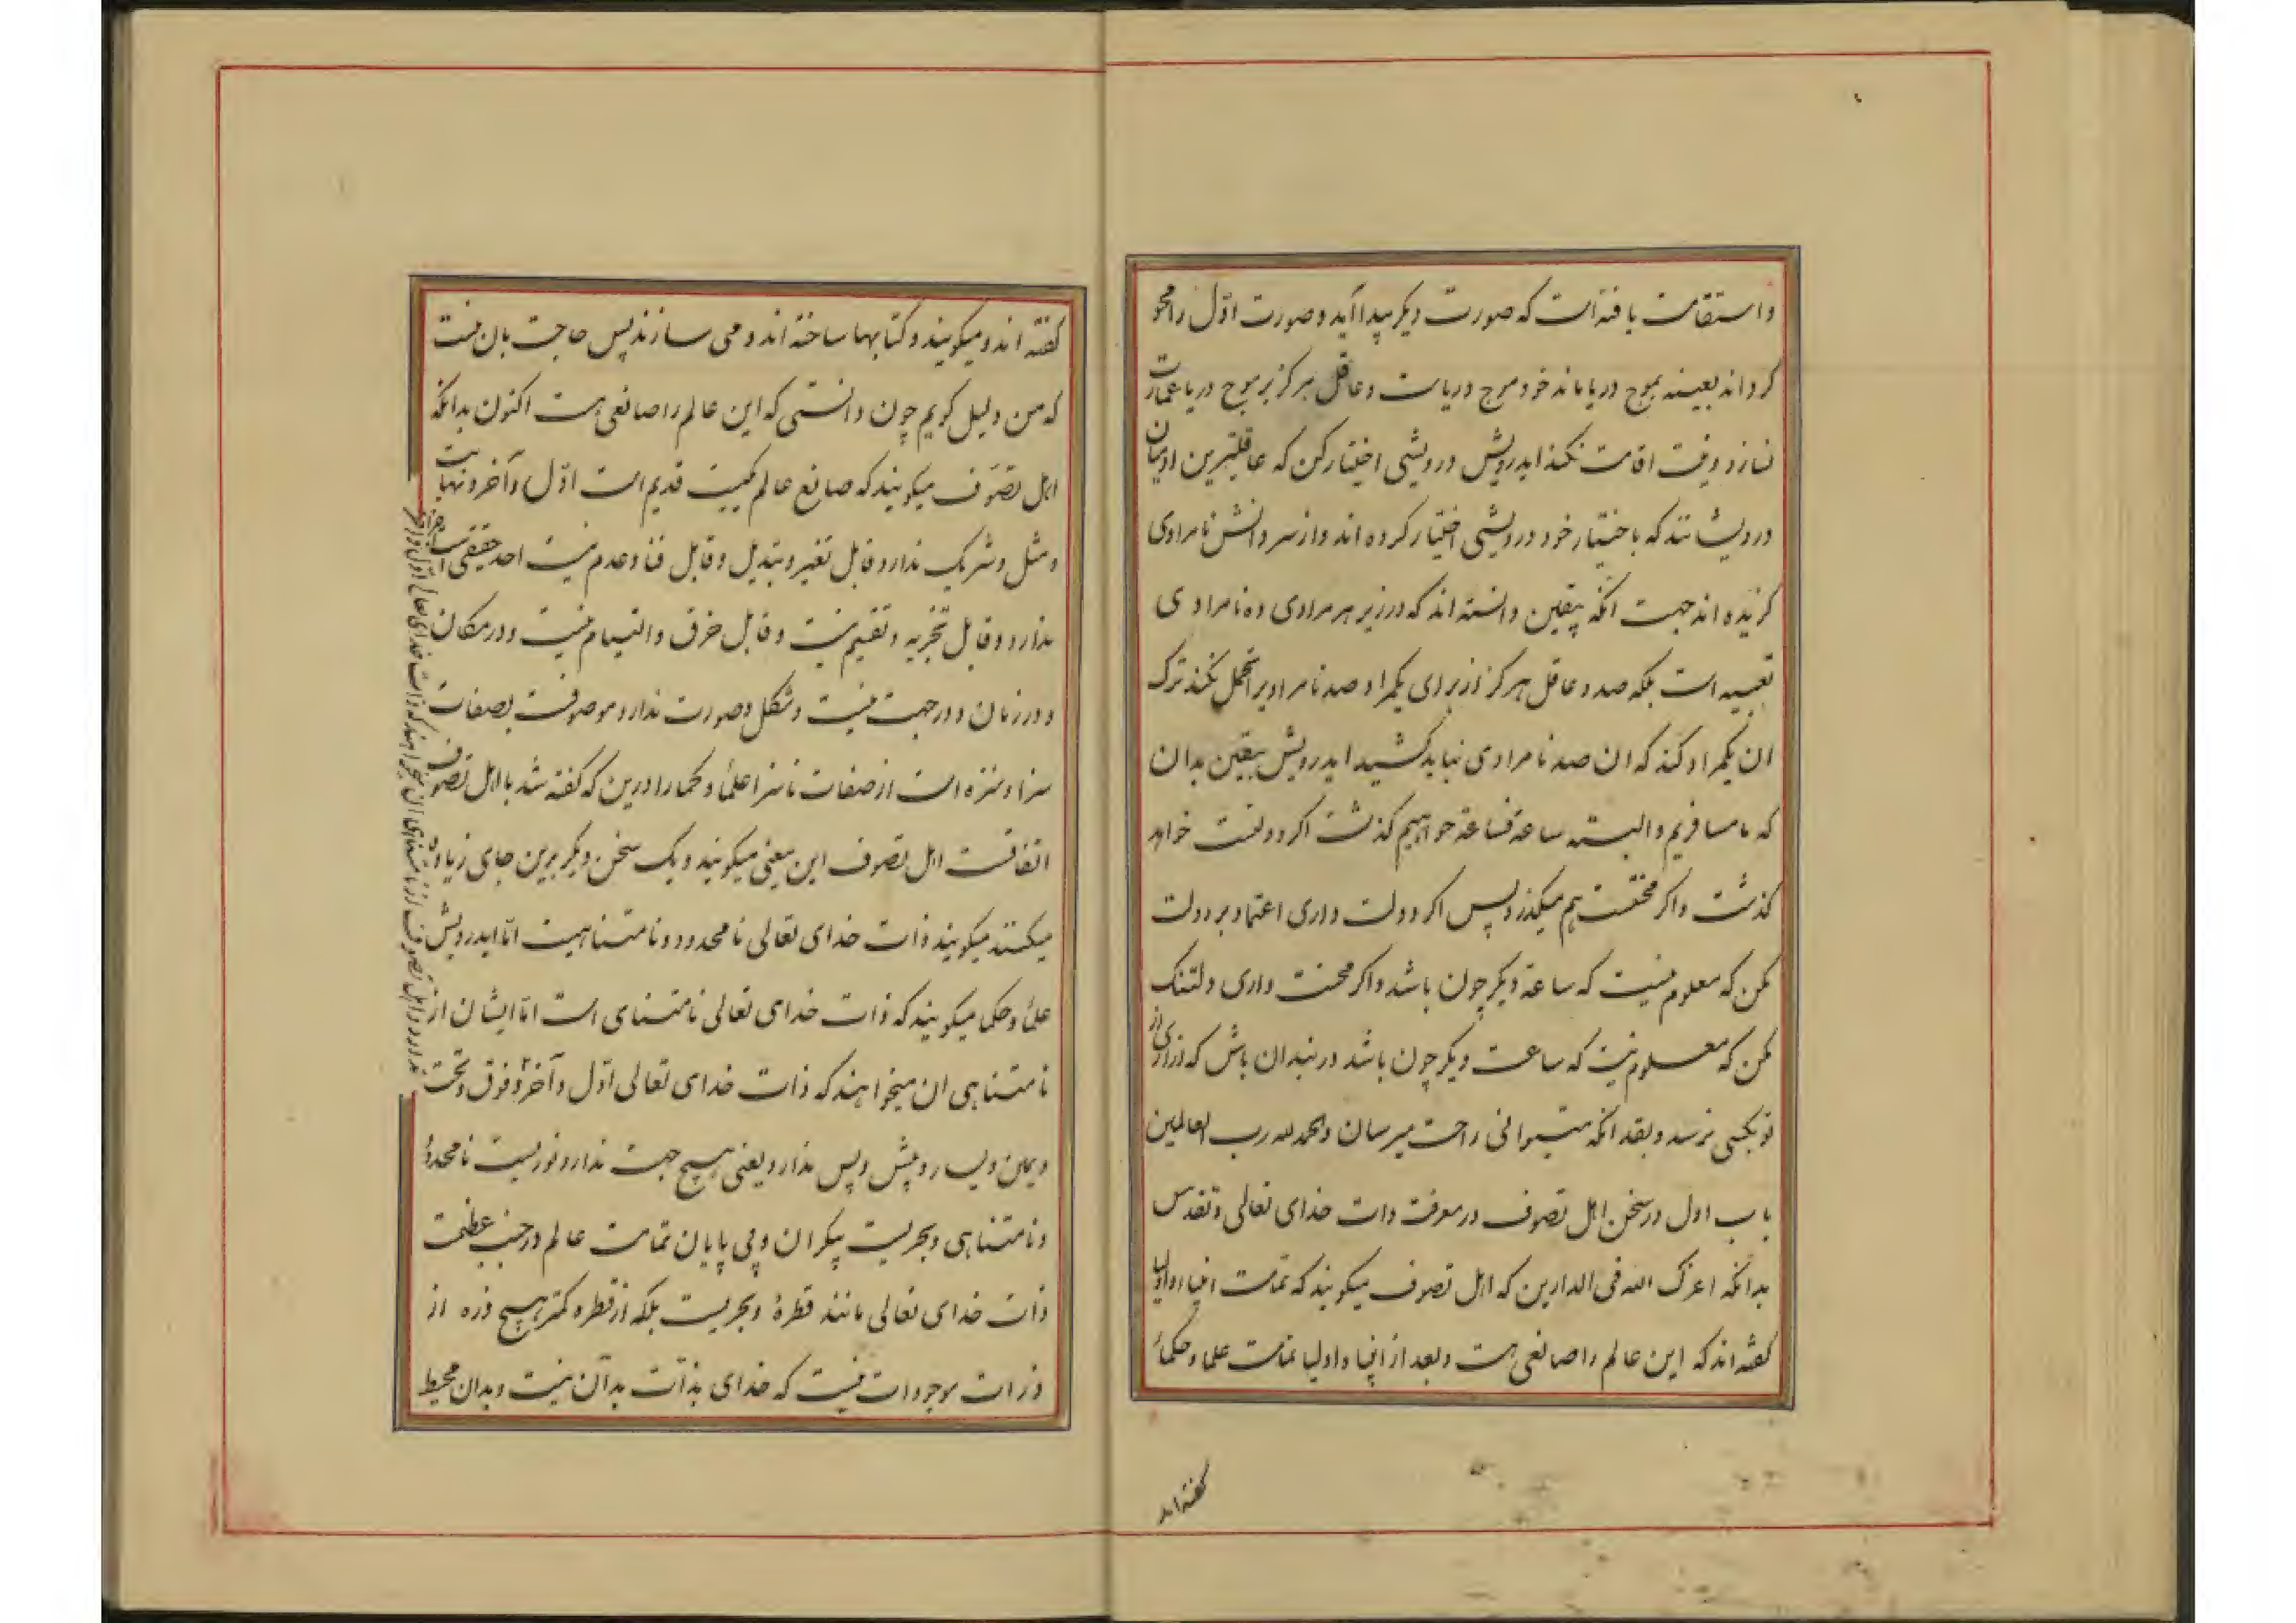 و استقامت یافته است که صورت دیکر پیدا آید و صورت اوّل را محو
کرداند بعینه بموج دریا ماند خود موج دریاست و عاقل هرکز بر موج دریا عمارت
نسازد و نیت اقامت نکند ایدرویش درویشی اختیار کن که عاقلترین ادمیان
درویشانند که باختیار خود درویشی اختیار کرده اند و از سر دانش نامرادی
کزیده اند جهت انکه بیقین دانسته اند که در زیر هر مرادی ده نامرادی
تعبیه است بلکه صد و عاقل هرکز از برای یکمراد صد نامرادیرا تحمل نکند ترک
ان یکمراد کند که ان صد نامرادی نباید کشید ایدرویش بیقین بدان
که ما مسافریم و البته ساعة فساعة خواهیم کذشت اکر دولتست خواهد
کذشت و اکر محنتست هم میکذرد پس اکر دولت داری اعتماد بر دولت
مکن که معلوم نیست که ساعة دیکر چون باشد و اکر محنت داری دلتنک
مکن که معلوم نیست که ساعت دیکر چون باشد در بند ان باش که ازاری از
تو بکسی نرسد و بقد انکه میتوانی راحت میرسان و الحمد لله رب العالمین
باب اول در سخن اهل تصوف در معرفت ذات خدای تعالی و تقدس
بدانکه اعزک الله فی الدارین که اهل تصوف میکویند که تمامت انبیا و اولیا
کفته اند که این عالم را صانعی هست و بعد از انبیا و اولیا تمامت علما و حکما
کفته اند
کفته اند و میکویند و کتابها ساخته اند و می سازند پس حاجت بان نیست
که من دلیل کویم چون دانستی که این عالم را صانعی هست اکنون بدانکه
اهل تصوّف میکویند که صانع عالم یکیست قدیم است اوّل و آخر و نهایت
و مثل و شریک ندارد و قابل تغیر و تبدیل و قابل فنا و عدم نیست احد حقیقی است اجزا
ندارد و قابل تجزیه و تقسیم نیست و قابل خرق و التیام نیست و در مکان
و در زمان و در جهت نیست و شکل و صورت ندارد موصوفست بصفات
سزا و منزه است از صفات ناسزا علما و حکما را درین که کفته شد با اهل تصوف
اتفاقست اهل تصوف این معنی میکویند و یک سخن دیکر برین جای زیاده
میکنند میکویند ذات خدای تعالی نامحدود و نامتناهیست امّا ایدرویش
علما و حکما میکویند که ذات خدای تعالی نامتناهی است امّا ایشان از
نامتناهی ان میخواهند که ذات خدای تعالی اوّل و آخر ندارد و اهل تصوف از نامتناهی ان میخواهند که ذات خدای تعالی اوّل و آخر و فوق و تحت
و یمین و یسار و پیش و پس ندارد یعنی هیچ جهت ندارد نوریست نامحدود
و نامتناهی و بحریست بیکران و بی پایان تمامت عالم در جنب عظمت
ذات خدای تعالی مانند قطرهٔ و بحریست بلکه از قطره کمتر هیچ ذره از
ذرات موجودات نیست که خدای بذات بدان نیست و بدان محیط